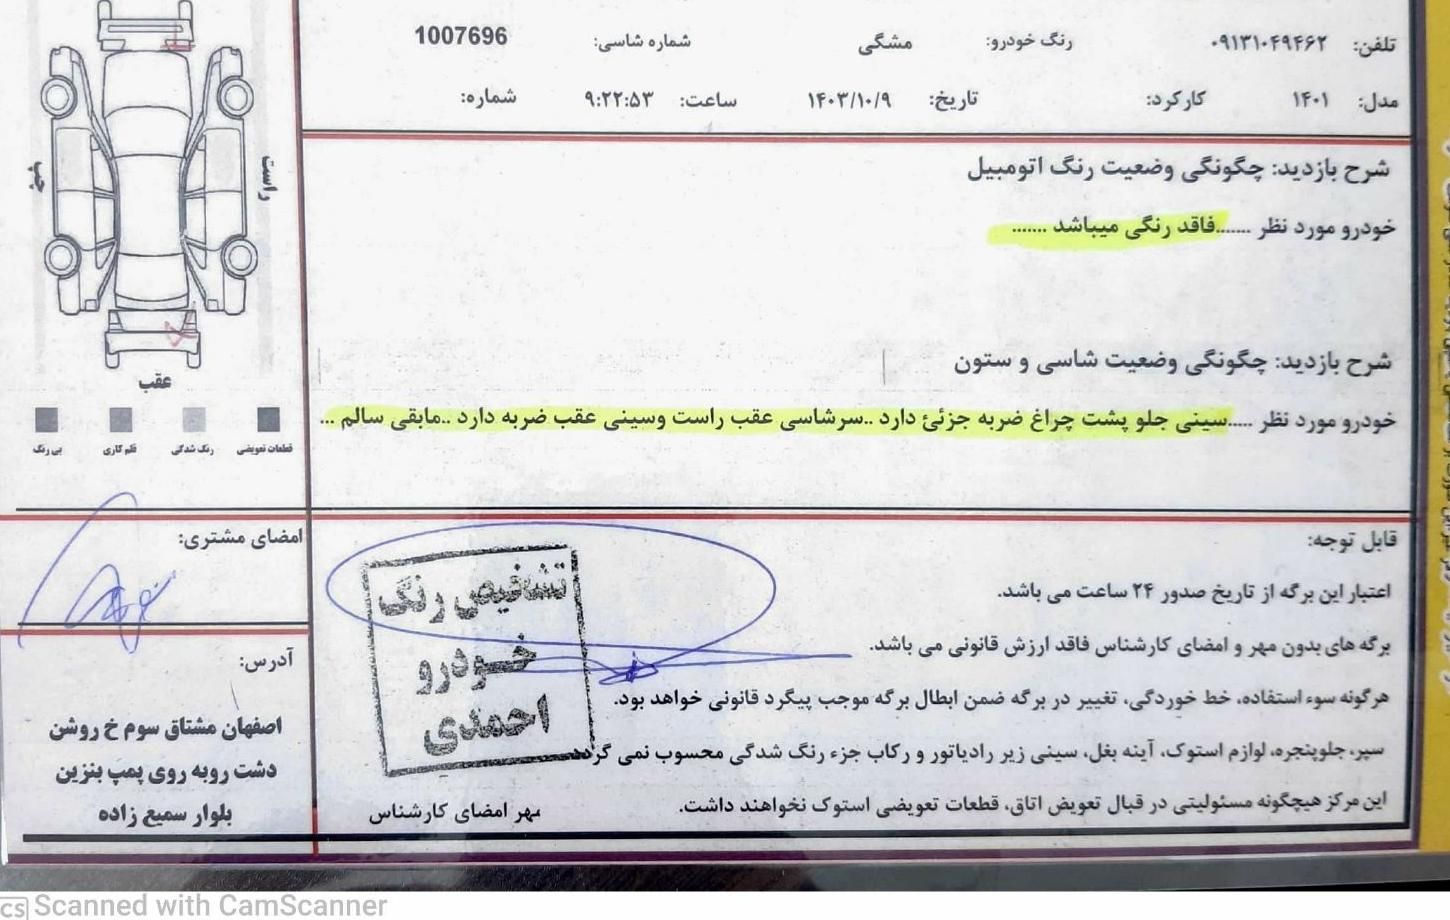 تلفن: ۰۹۱۳۱۰۴۹۴۶۲ رنگ خودرو: مشگی شماره شاسی: 1007696
مدل: ۱۴۰۱ کارکرد: تاریخ: ۱۴۰۳/۱۰/۹ ساعت: ۹:۲۲:۵۳ شماره:
شرح بازدید: چگونگی وضعیت رنگ اتومبیل
خودرو مورد نظر .......فاقد رنگی میباشد .......
شرح بازدید: چگونگی وضعیت شاسی و ستون
خودرو مورد نظر .....سینی جلو پشت چراغ ضربه جزئئ دارد ..سرشاسی عقب راست وسینی عقب ضربه دارد ..مابقی سالم ...
راست
چپ
عقب
قطعات تعویضی
رنگ شدگی
قلم کاری
بی رنگ
قابل توجه:
اعتبار این برگه از تاریخ صدور ۲۴ ساعت می باشد.
برگه های بدون مهر و امضای کارشناس فاقد ارزش قانونی می باشد.
هرگونه سوء استفاده، خط خوردگی، تغییر در برگه ضمن ابطال برگه موجب پیگرد قانونی خواهد بود.
سپر، جلوپنجره، لوازم استوک، آینه بغل، سینی زیر رادیاتور و رکاب جزء رنگ شدگی محسوب نمی گردد
این مرکز هیچگونه مسئولیتی در قبال تعویض اتاق، قطعات تعویضی استوک نخواهند داشت.
تشخیص رنگ
خودرو
احمدی
مهر امضای کارشناس
امضای مشتری:
آدرس:
اصفهان مشتاق سوم خ روشن
دشت روبه روی پمپ بنزین
بلوار سمیع زاده
CS Scanned with CamScanner